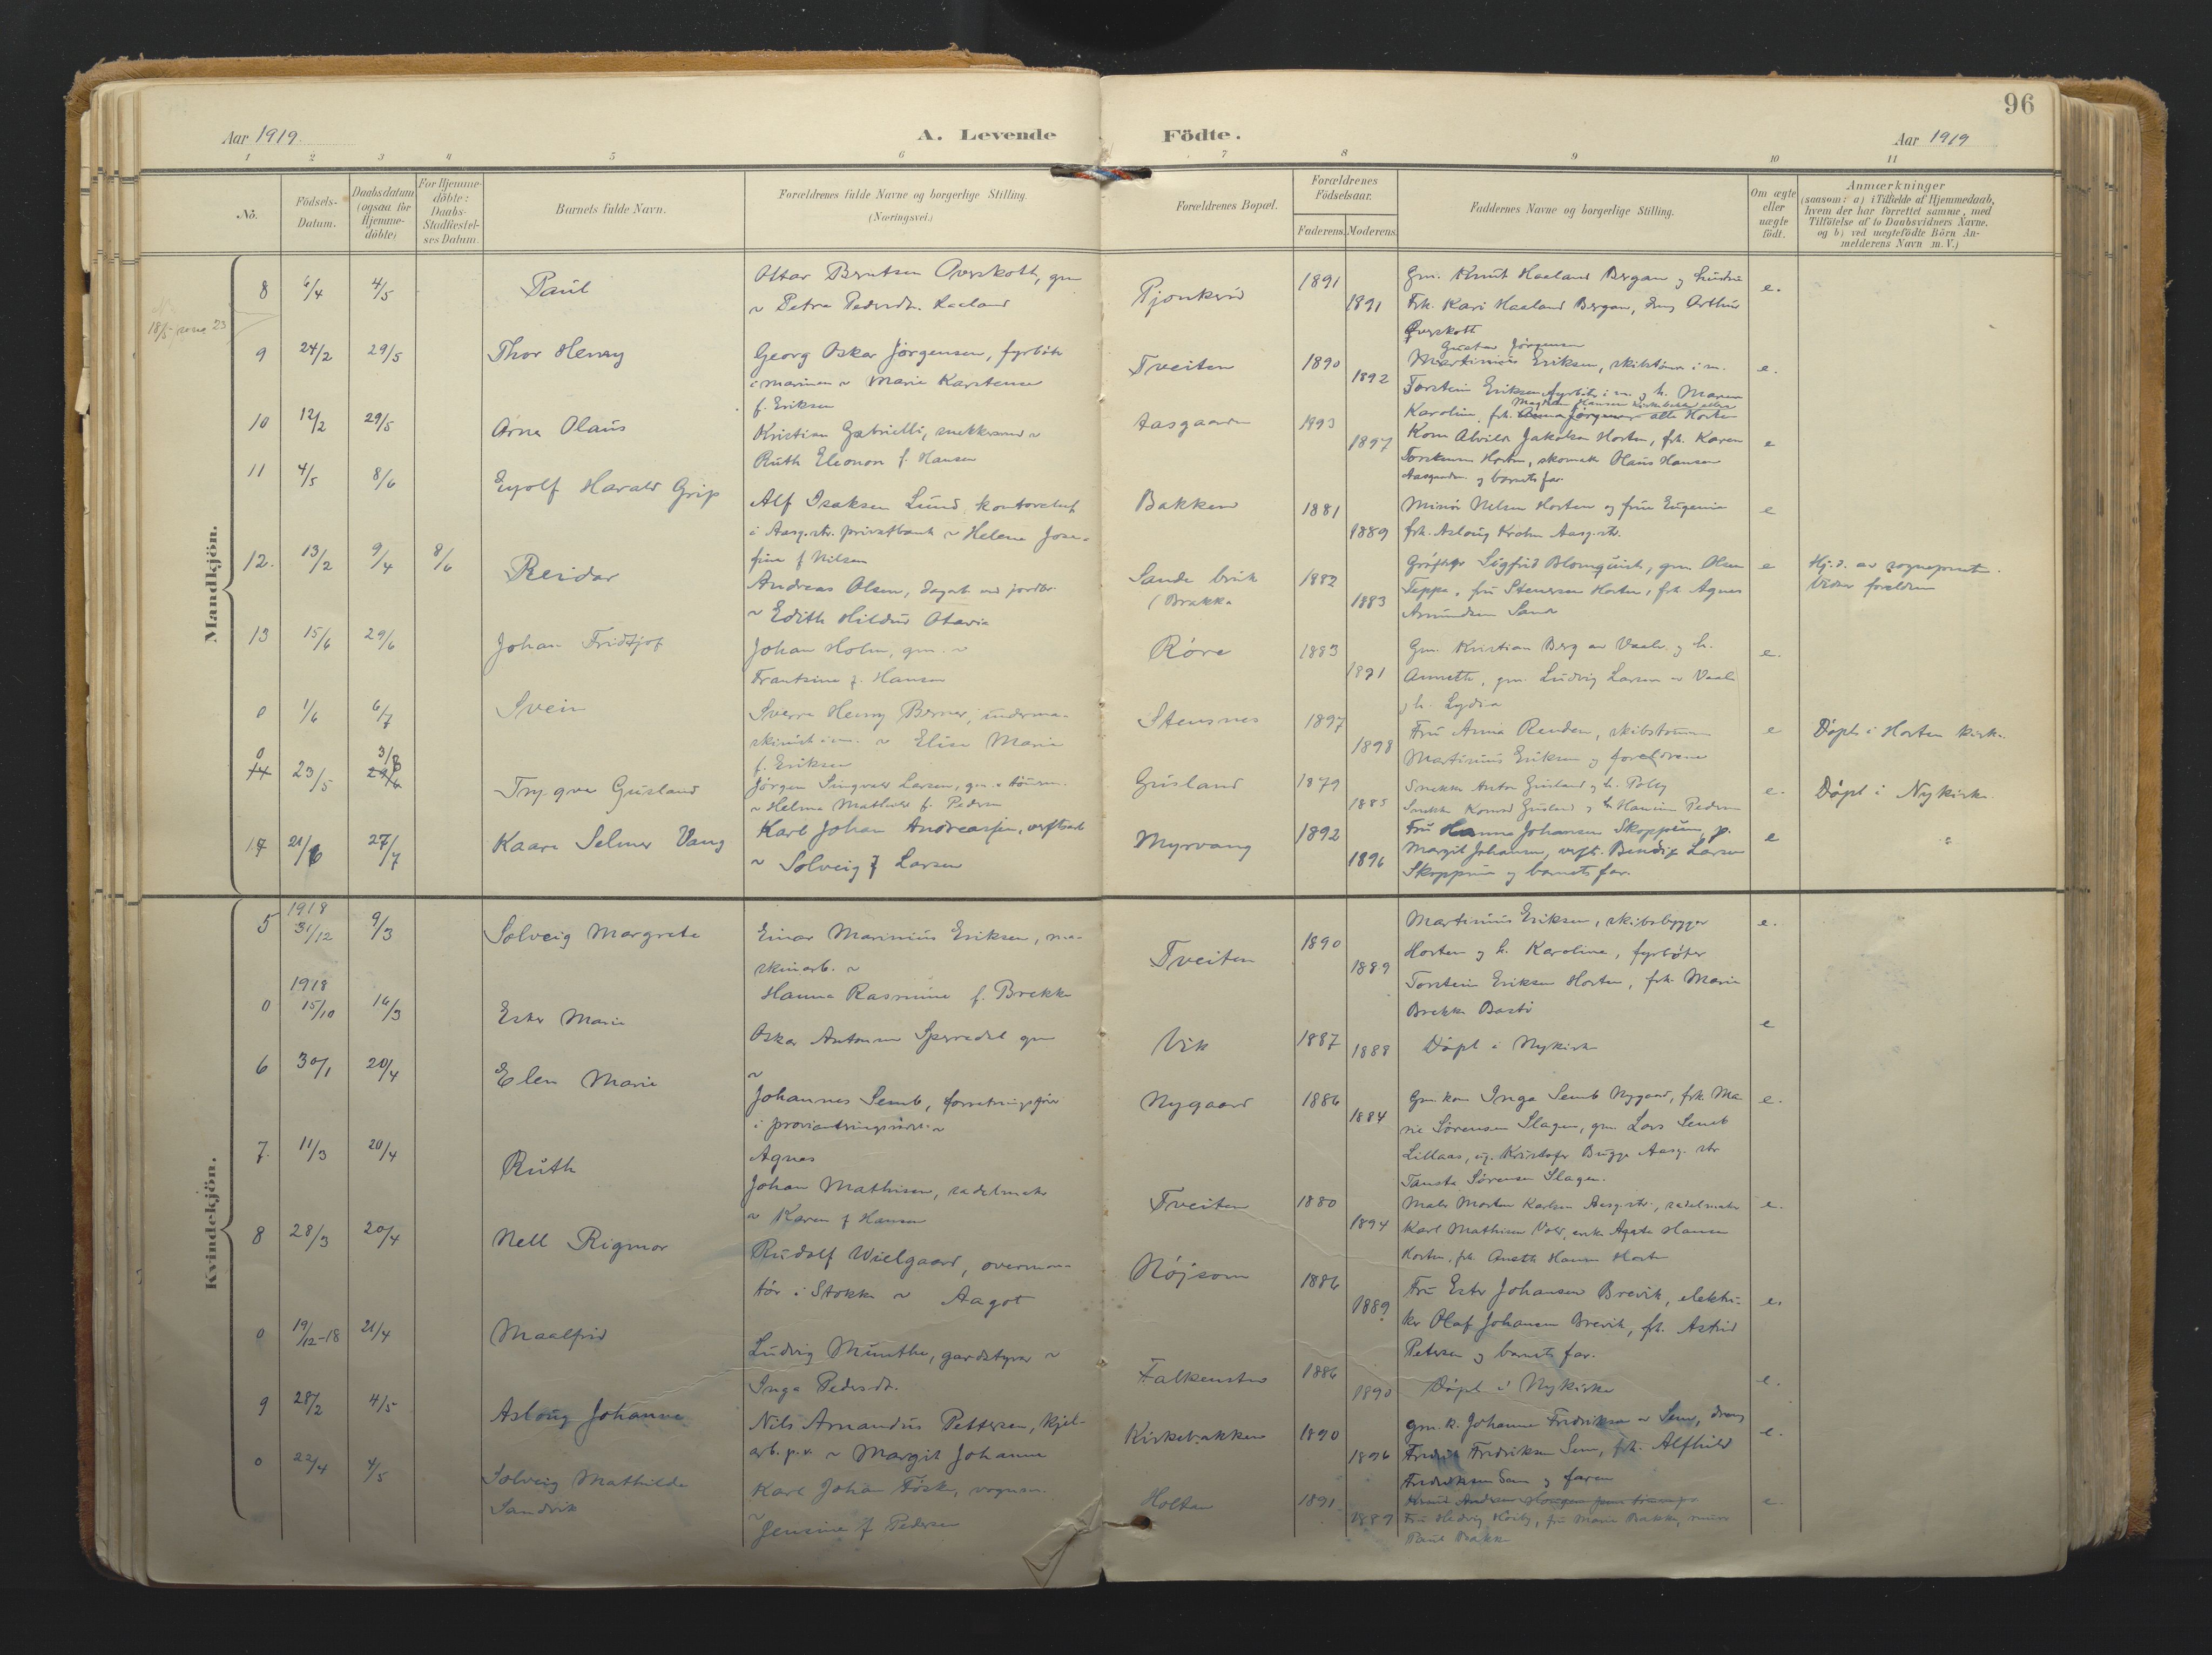 96
Aar 1919.
A. Levende Födte.
Aar 1919
1 2 3 4 5 6 7 8 9 10 11
No.
Födsels-
Datum.
Daabsdatum
(ogsaa for
Hjemme-
döbte)
For Hjemme-
döbte:
Daabs-
Stadfæstel-
ses Datum.
Barnets fulde Navn.
Forældrenes fulde Navne og borgerlige Stilling.
(Næringsvei.)
Forældrenes Bopæl.
Forældrenes
Födselsaar.
Faderens. Moderens.
Faddernes Navne og borgerlige Stilling.
Om ægte
eller
uægte
födt.
Anmærkninger
(saasom: a) i Tilfælde af Hjemmedaab,
hvem der har forrettet samme, med
Tilföielse af to Daabsvidners Navne.
og b) ved uægtefödte Börn An-
melderens Navn m. V.)
Mandkjön.
8 6/4 4/5 Paul
Ottar Berntsen Overskott, gm
~ Petra Pedersdt. Haaland
1891
1891
Gm. Knut Haaland Bergan
Frk. Kari Haaland Bergan, Arthur
Overskott
e.
9 24/2 29/5 Thor Henry
Georg Oskar Jörgensen, fyrböt
i marinen ~ Marie Karstense
f. Eriksen
Tveiten
1890
1892
Gustav Jörgensen
Martinius Eriksen, skibstömm i m.
Torstein Eriksen fyrböt i m. g h. Maren
Karoline, frk. Anna Jörgensen alle Horten
e.
10 12/2 29/5 Arne Olaus
Kristian Gabrielli, snekkersvend ~
Ruth Eleonora f. Hansen
Aasgaarden
1893
1897
Kone Alvilde Jakobsen Horten, frk. Karen
Horten, skomak Olaus Hansen
Aasgaarden og barnets far
e
11 4/5 8/6 Eyolf Harald Grip
Alf Isaksen Lund, kontorchef
i Aasg.str. privatbank ~ Helene Jose-
fine f Nilsen
Bakken
1881
1889
Nilsen Horten og frue Eugenie
frk. Aslaug Krohn Aasg.str.
e
12. 13/2 9/4 8/6 Reidar
Andreas Olsen, dagarb ved jordbr.
~ Edith Hildur Otavia
Sande bruk
(Brakka
1882
1883
Sigfrid Blomquist, gm. Olsen
Teppe, fru Stenersen Horten, frk Agnes
Amundsen Sande
e
Hj.d. av sogneprest.
Vidner foreldrene
13 15/6 29/6 Johan Fridtjof
Johan Holm, gm. ~
Frantsine f. Hansen
Röre
1883
1891
Gm. Kristian Berg av Vaale g h.
Annette, gm. Ludvig Larsen av Vaale
g h. Lydia
e.
0 1/6 6/7 Svein
Sverre Henry Berner, underma-
skinist i m. ~ Elise Marie
f. Eriksen
Stensnes
1897
1898
Fru Anna Renden, skibstömm
Martinius Eriksen g foreldrene
e
Döpt i Horten kirke
0 14 23/5 3/8 29/6 Trygve Gusland
Jörgen Singvald Larsen, gm. tömm.
~ Helma Mathilde f. Pedersen
Gusland
1879
1885
Snekker Anton Gusland g h.
Snekk Konrad Gusland g h. Pedersen
e.
Döpt i Nykirke
14 21/6 27/7 Kaare Selmer Vang
Karl Johan Andreassen, verftsarb
~ Solveig f Larsen
Myrvang
1892
1896
Fru Hanna Johansen Skoppum, p.
Margit Johansen, verft. Bendix Larsen
Skoppum g barnets far.
e
Kvindekjön.
5 1918 31/12 9/3 Solveig Margrete
Einar Marinius Eriksen, ma-
skinarb. ~
Hanna Rasmine f. Brekke
Tveiten
1890
1889
Martinius Eriksen, skibsbygger
Horten g h. Karoline, fyrböter
Torstein Eriksen Horten, frk. Marie
Brekke Bastö
e.
0 1918 15/10 16/3 Ester Marie
Oskar Antonsen Sperredal gm
~
Vik
1887
1888
Döpt i Nykirke
e
6 30/1 20/4 Elen Marie
Johannes Semb, forretningsförer
i ~
Agnes
Nygaard
1886
1884
Gm.kone Inga Semb Nygaard, frk. Ma
rie Sörensen Slagen, gm. Lars Semb
Lillaas, ug. Kristofer Bugge Aasg. str
Sörensen Slagen.
e.
7. 11/3 20/4 Ruth
Johan Mathisen, sadelmaker
~ Karen f Hansen
Tveiten
1880
1894
Maler Morten Karlsen Aasg.str., sadelmaker
Karl Mathisen, enke Agate Hansen
Horten, frk. Aneth Hansen Horten
e.
8 28/3 20/4 Nell Rigmor
Rudolf Wielgaard, overmon-
tör i Stokke ~ Aagot
Nöjsom
1886
1889
Fru Ester Johansen Brevik, elektri-
ker Olaf Johansen Brevik, frk. Astrid
Petersen g barnets far.
e.
0 19/12-18 21/4 Maalfrid
Ludvig Munthe, gardstyrer ~
Inga Pedersdt.
Falkensten
1886
1890
Döpt i Nykirke
e.
9 28/2 4/5 Aslaug Johanne
Nils Arnandus Pettersen, kjel-
arb. p.v. ~ Margit Johanne
Kirkebakken
1890
1896
gm. k. Johanne Fredriksen av Sem, dreng
Fredrik Fredriksen Sem, frk. Alfhild
Fredriksen Sem g faren
e.
0 22/4 4/5 Solveig Mathilde
Sandvik
Karl Johan Fösk, vognm.
~
Jensine f Pedersen
Holtan
1891
1889
Fru Hedvig, fru Marie Bakke, murer
Paul Bakke
e.